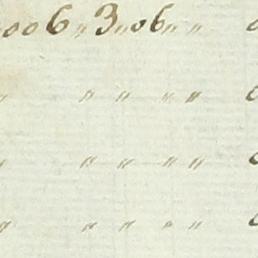 006 „ 3 „ 06 „ „
„ „ „ „ „
„ „ „ „ „
„ „ „ „ „